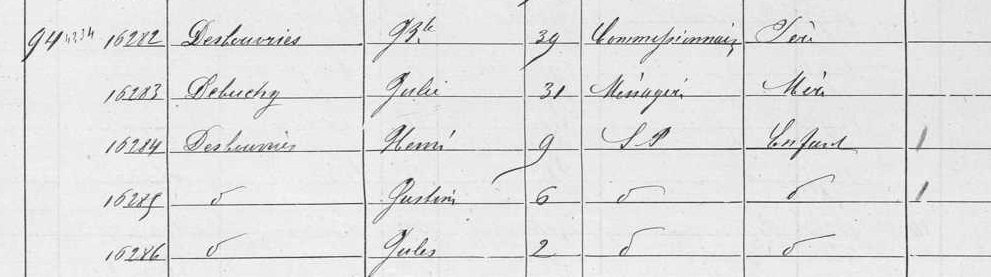 94 4234 16282 Desbouvries Bte 39 Commissionnaire Père
16283 Debuchy Julie 31 Ménagère Mère
16284 Desbouvries Henri 9 S P Enfant 1
16285 d Justin 6 d d 1
16286 d Jules 2 d d